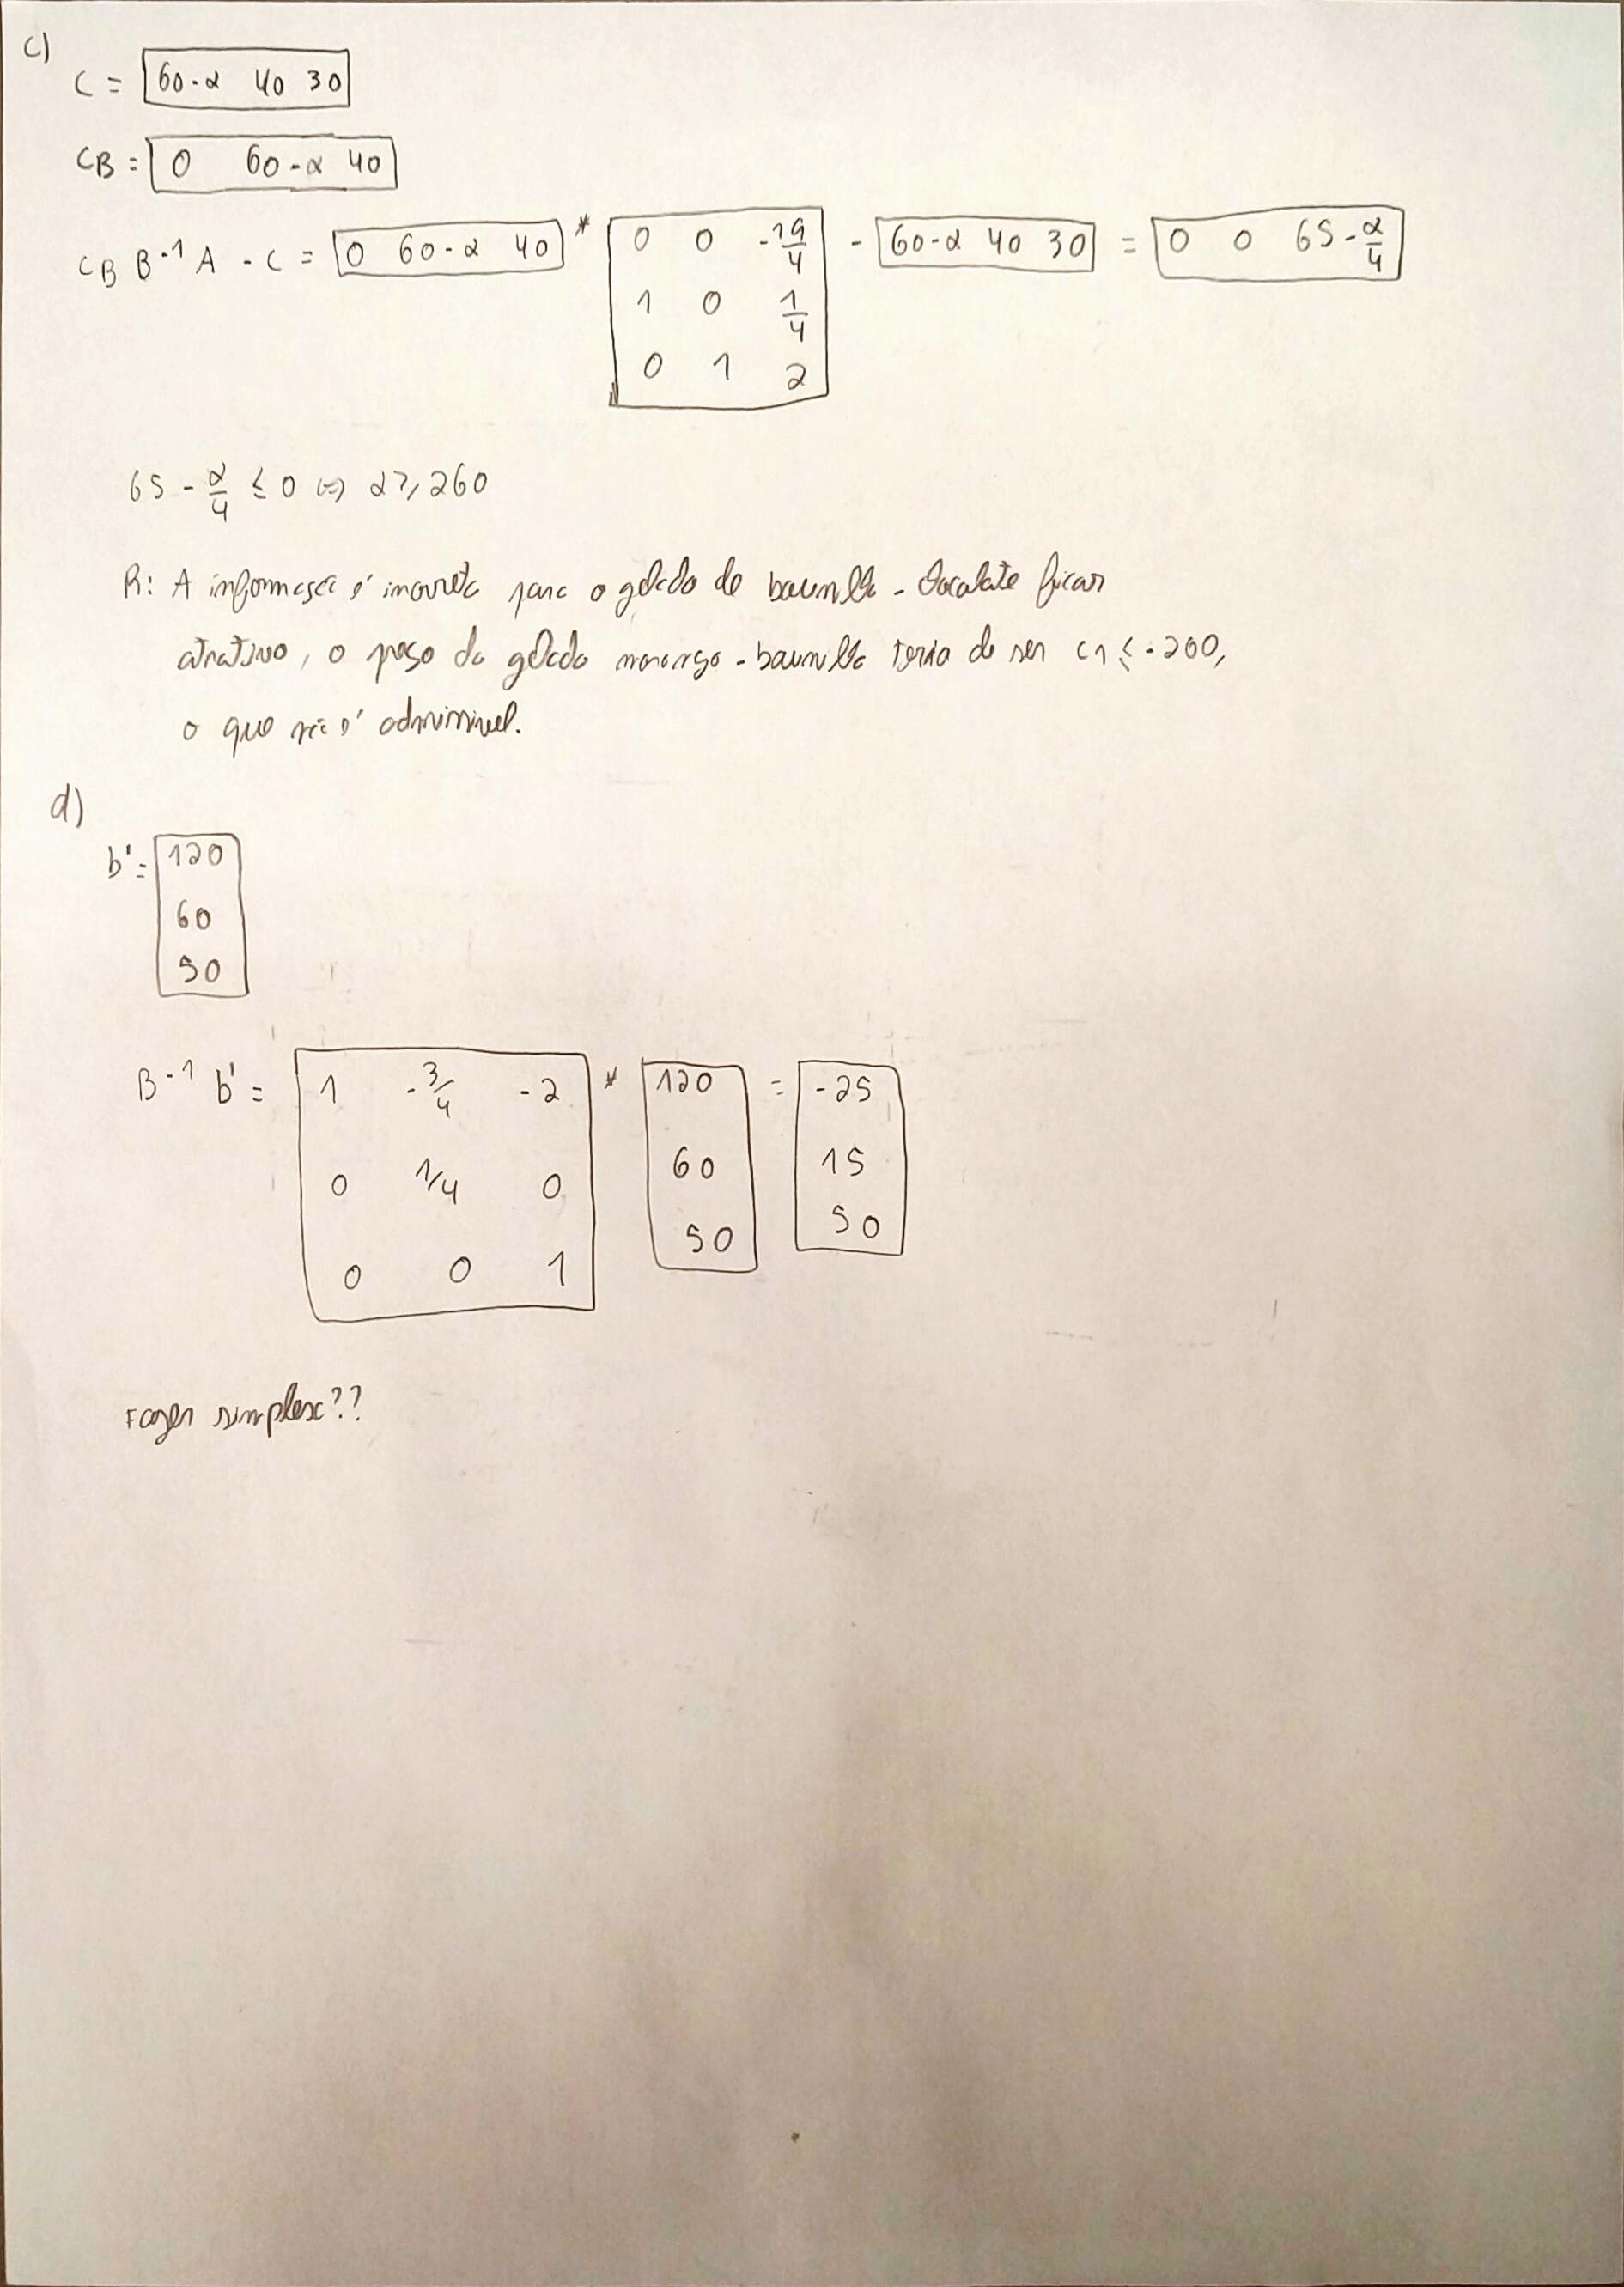 c)
C = 60-α 40 30
CB = 0 60-α 40
CB B-1 A - C = 0 60-α 40 * 0 0 -19/4 - 60-α 40 30 = 0 0 65-α/4
1 0 1/4
0 1 2
65 - α/4 ≤ 0 ⇔ α ≥ 260
R: A informação é incorreta para o gelado de baunilha - chocolate ficar
atrativo, o preço do gelado morango - baunilha teria de ser c1 ≤ -200,
o que não é admissível.
d)
b' = 120
60
50
B-1 b' = 1 -3/4 -2 * 120 = -25
0 1/4 0 60 15
0 0 1 50 50
Fazer simplex??